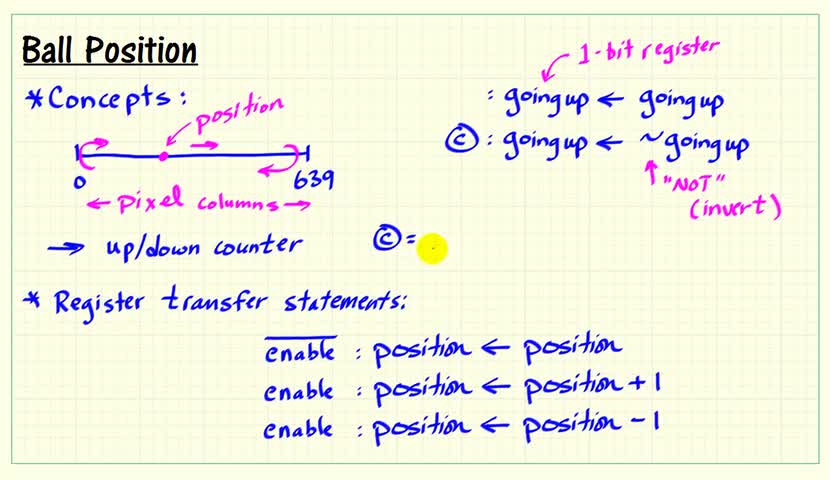 Ball Position
*Concepts:
position
0
639
← pixel columns →
→ up/down counter
1-bit register
: goingup ← goingup
ⓒ : goingup ← ~goingup
"NOT"
(invert)
ⓒ =
* Register transfer statements:
e̅n̅a̅b̅l̅e̅ : position ← position
enable : position ← position + 1
enable : position ← position - 1